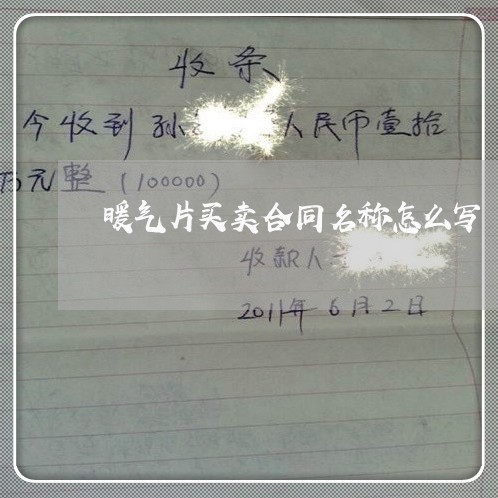 收条
今收到孙 人民币壹拾
万元整(100000)
暖气片买卖合同名称怎么写
收款人
2011年6月2日